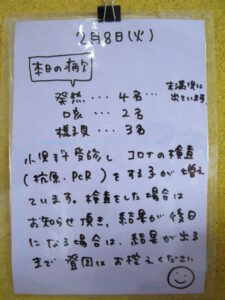 2月8日(火)
本日の病欠
発熱・・・4名…
未満児に
出ています
口唇・・・2名
様子見・・・3名
小児科受診し コロナの検査
(抗原、PCR)をする子が増え
ています。検査をした場合は
お知らせ頂き、結果が後日
になる場合は、結果が出る
まで登園はお控えください